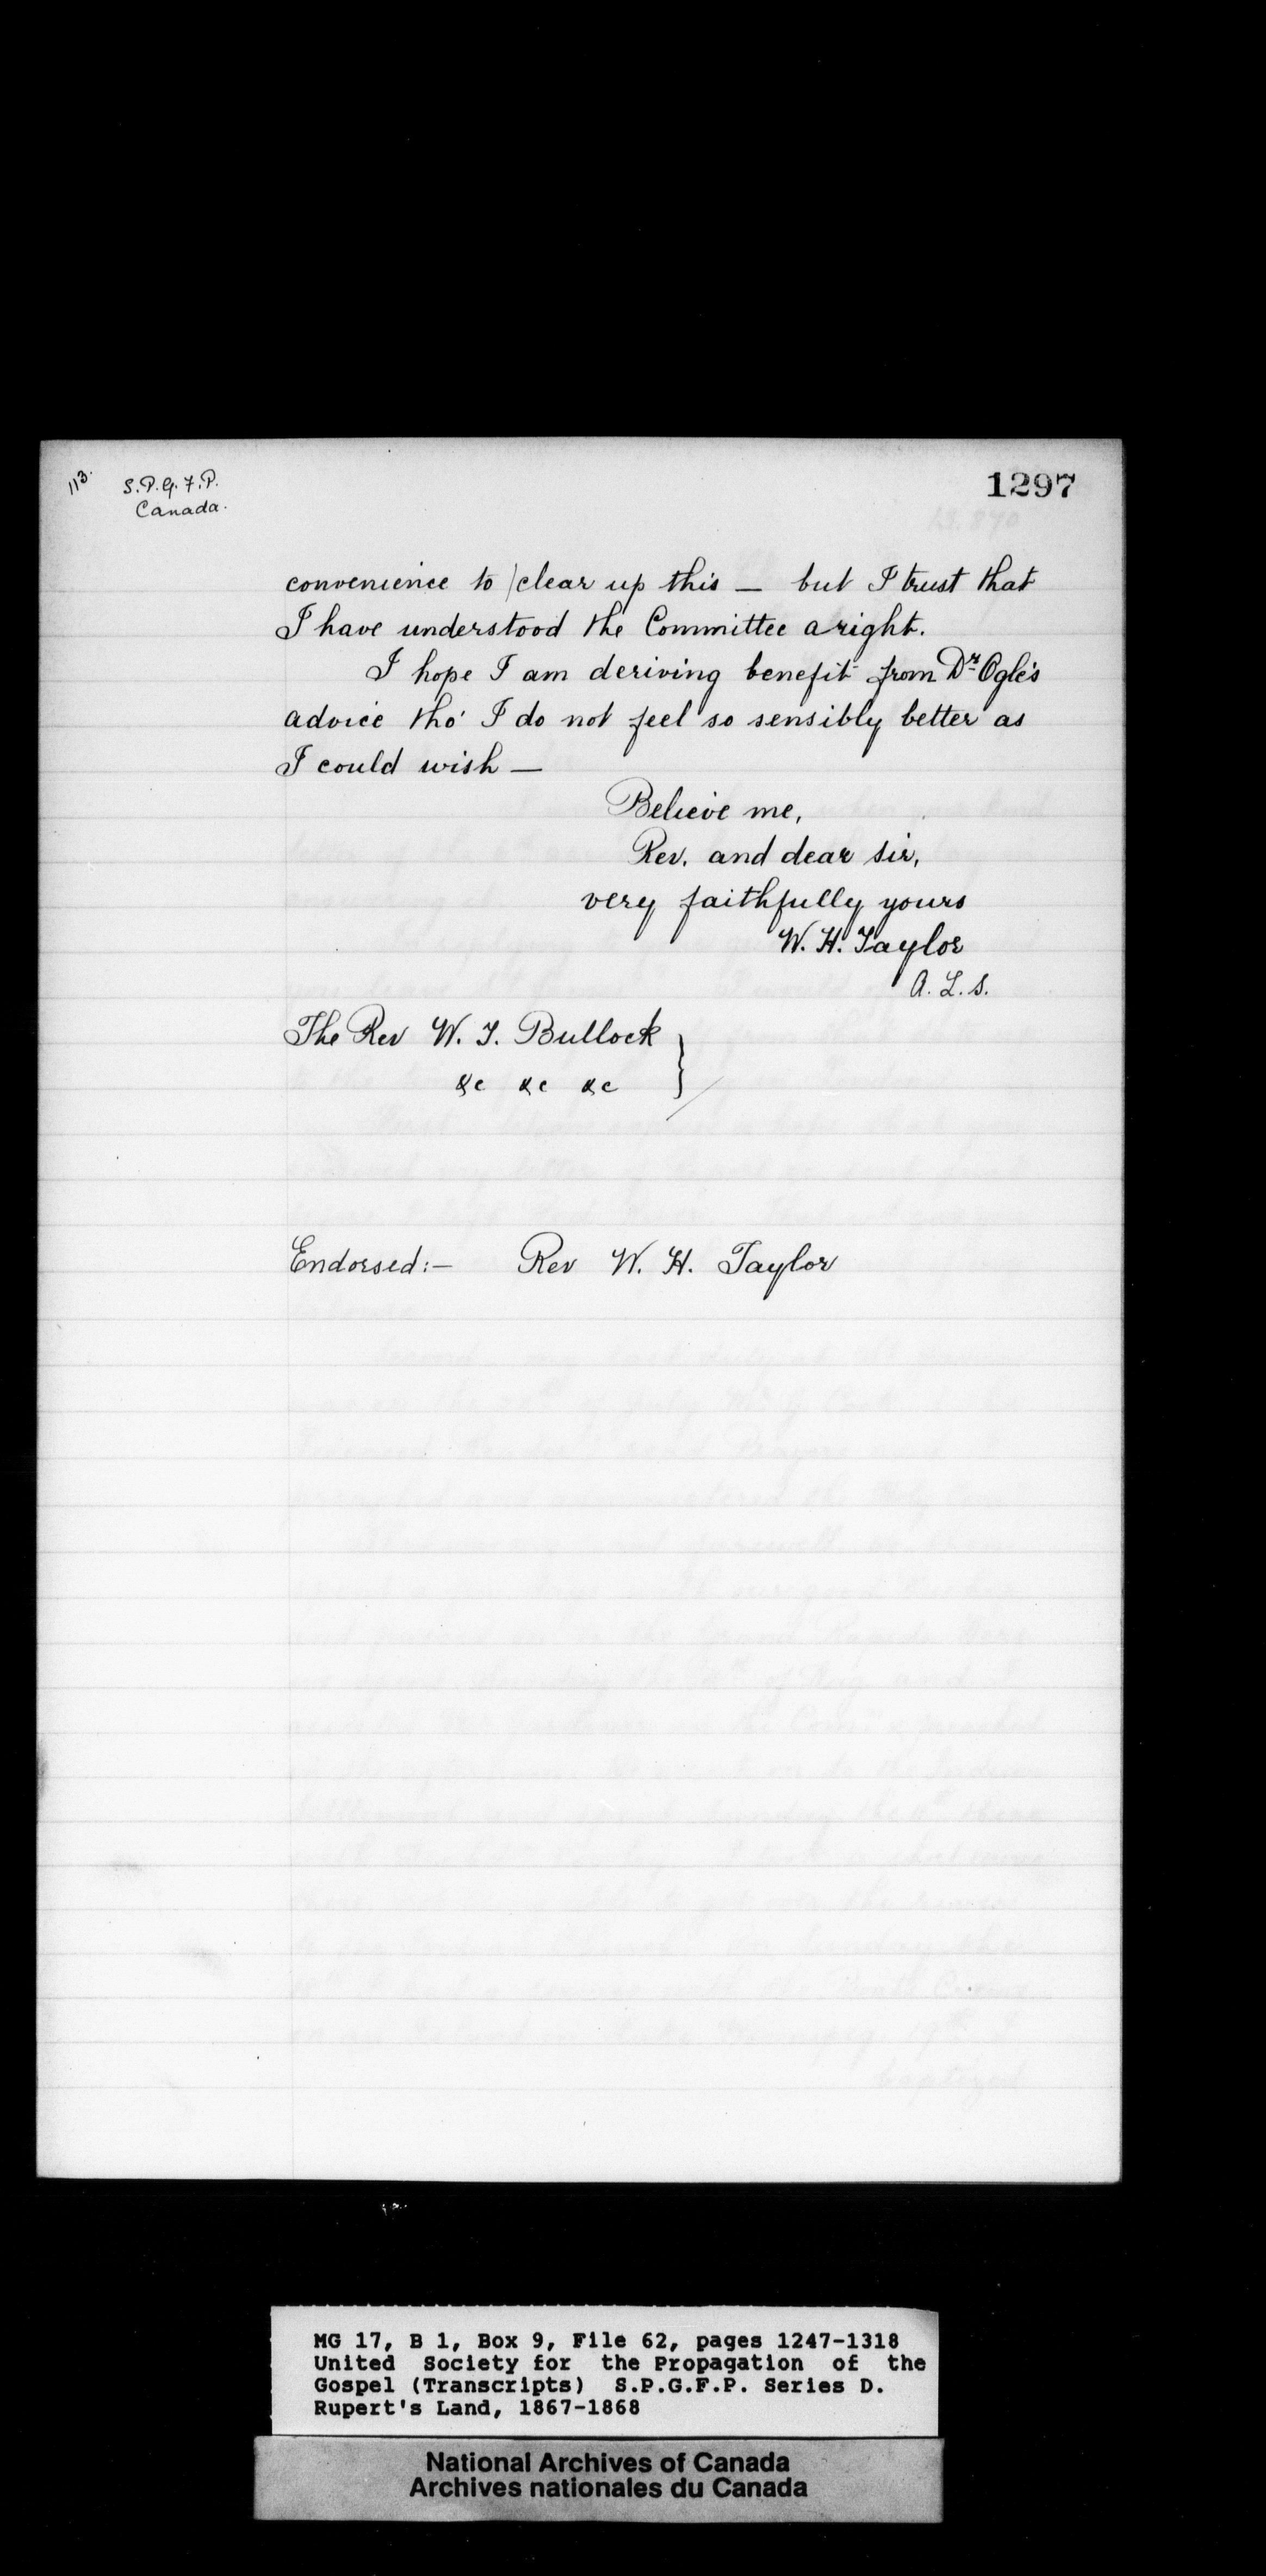 113.
S.P.G.F.P.
Canada.
1297
convenience to /clear up this — but I trust that
I have understood the Committee aright.
I hope I am deriving benefit from Dr. Ogle's
advice tho' I do not feel so sensibly better as
I could wish —
Believe me,
Rev. and dear Sir,
very faithfully yours
W. H. Taylor
A. L. S.
The Rev W. T. Bullock
&c &c &c
Endorsed:— Rev W. H. Taylor
MG 17, B 1, Box 9, File 62, pages 1247-1318
United Society for the Propagation of the
Gospel (Transcripts) S.P.G.F.P. Series D.
Rupert's Land, 1867-1868
National Archives of Canada
Archives nationales du Canada